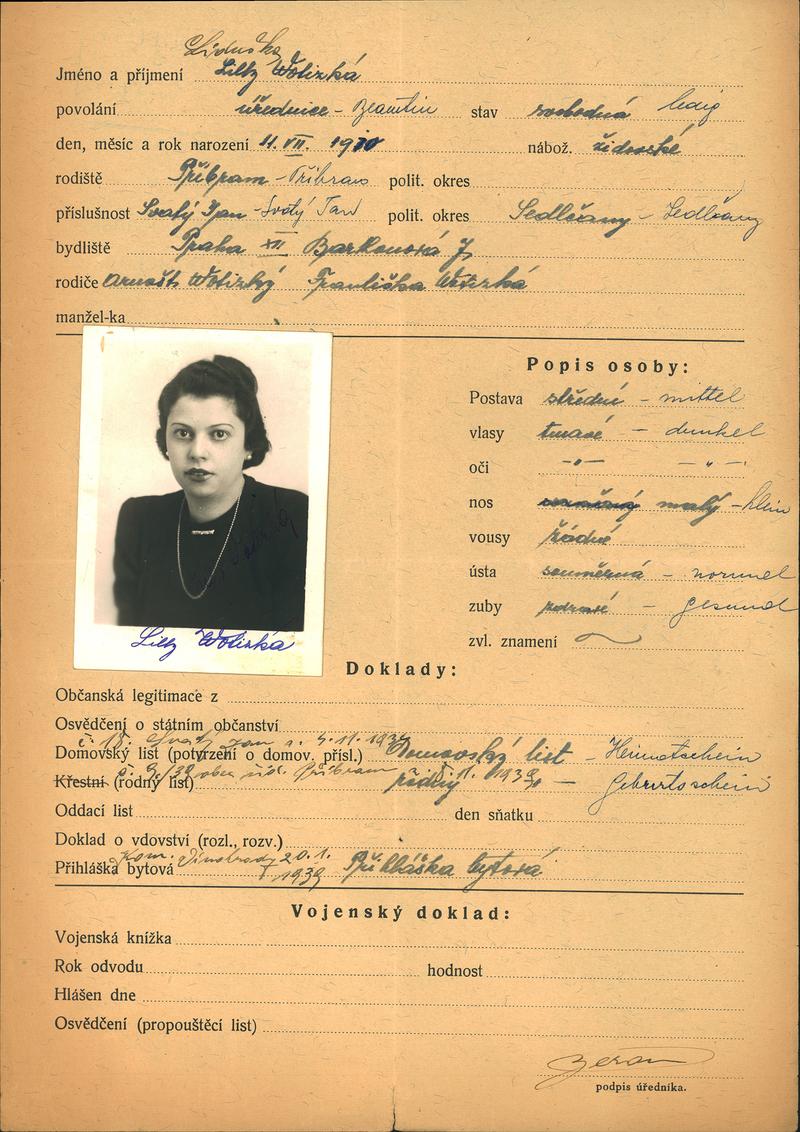 Liduška
Jméno a příjmení Lilly Wotizká
povolání úřednice - Beamtin stav svobodná ledig
den, měsíc a rok narození 11. VII. 1920 nábož. židovské
rodiště Příbram - Příbram polit. okres
příslušnost Svatý Jan - Svatý Jan polit. okres Sedlčany - Sedlčany
bydliště Praha XII
rodiče Arnošt Wotizký Františka Wotizká
manžel-ka
Popis osoby:
Postava střední - mittel
vlasy tmavé - dunkel
oči -„- -„-
nos malý - klein
vousy žádné
ústa souměrná - normal
zuby zdravé - gesund
zvl. znamení
Lilly Wotizká
Doklady:
Občanská legitimace z
Osvědčení o státním občanství
Svatý Jan
Domovský list (potvrzení o domov. přísl.) Domovský list - Heimatschein
Příbram
Křestní (rodný list) rodný - Geburtsschein
Oddací list den sňatku
Doklad o vdovství (rozl., rozv.)
Kom. Vinohrady 20.1.
Přihláška bytová 1939 Přihláška bytová
Vojenský doklad:
Vojenská knížka
Rok odvodu hodnost
Hlášen dne
Osvědčení (propouštěcí list)
podpis úředníka.